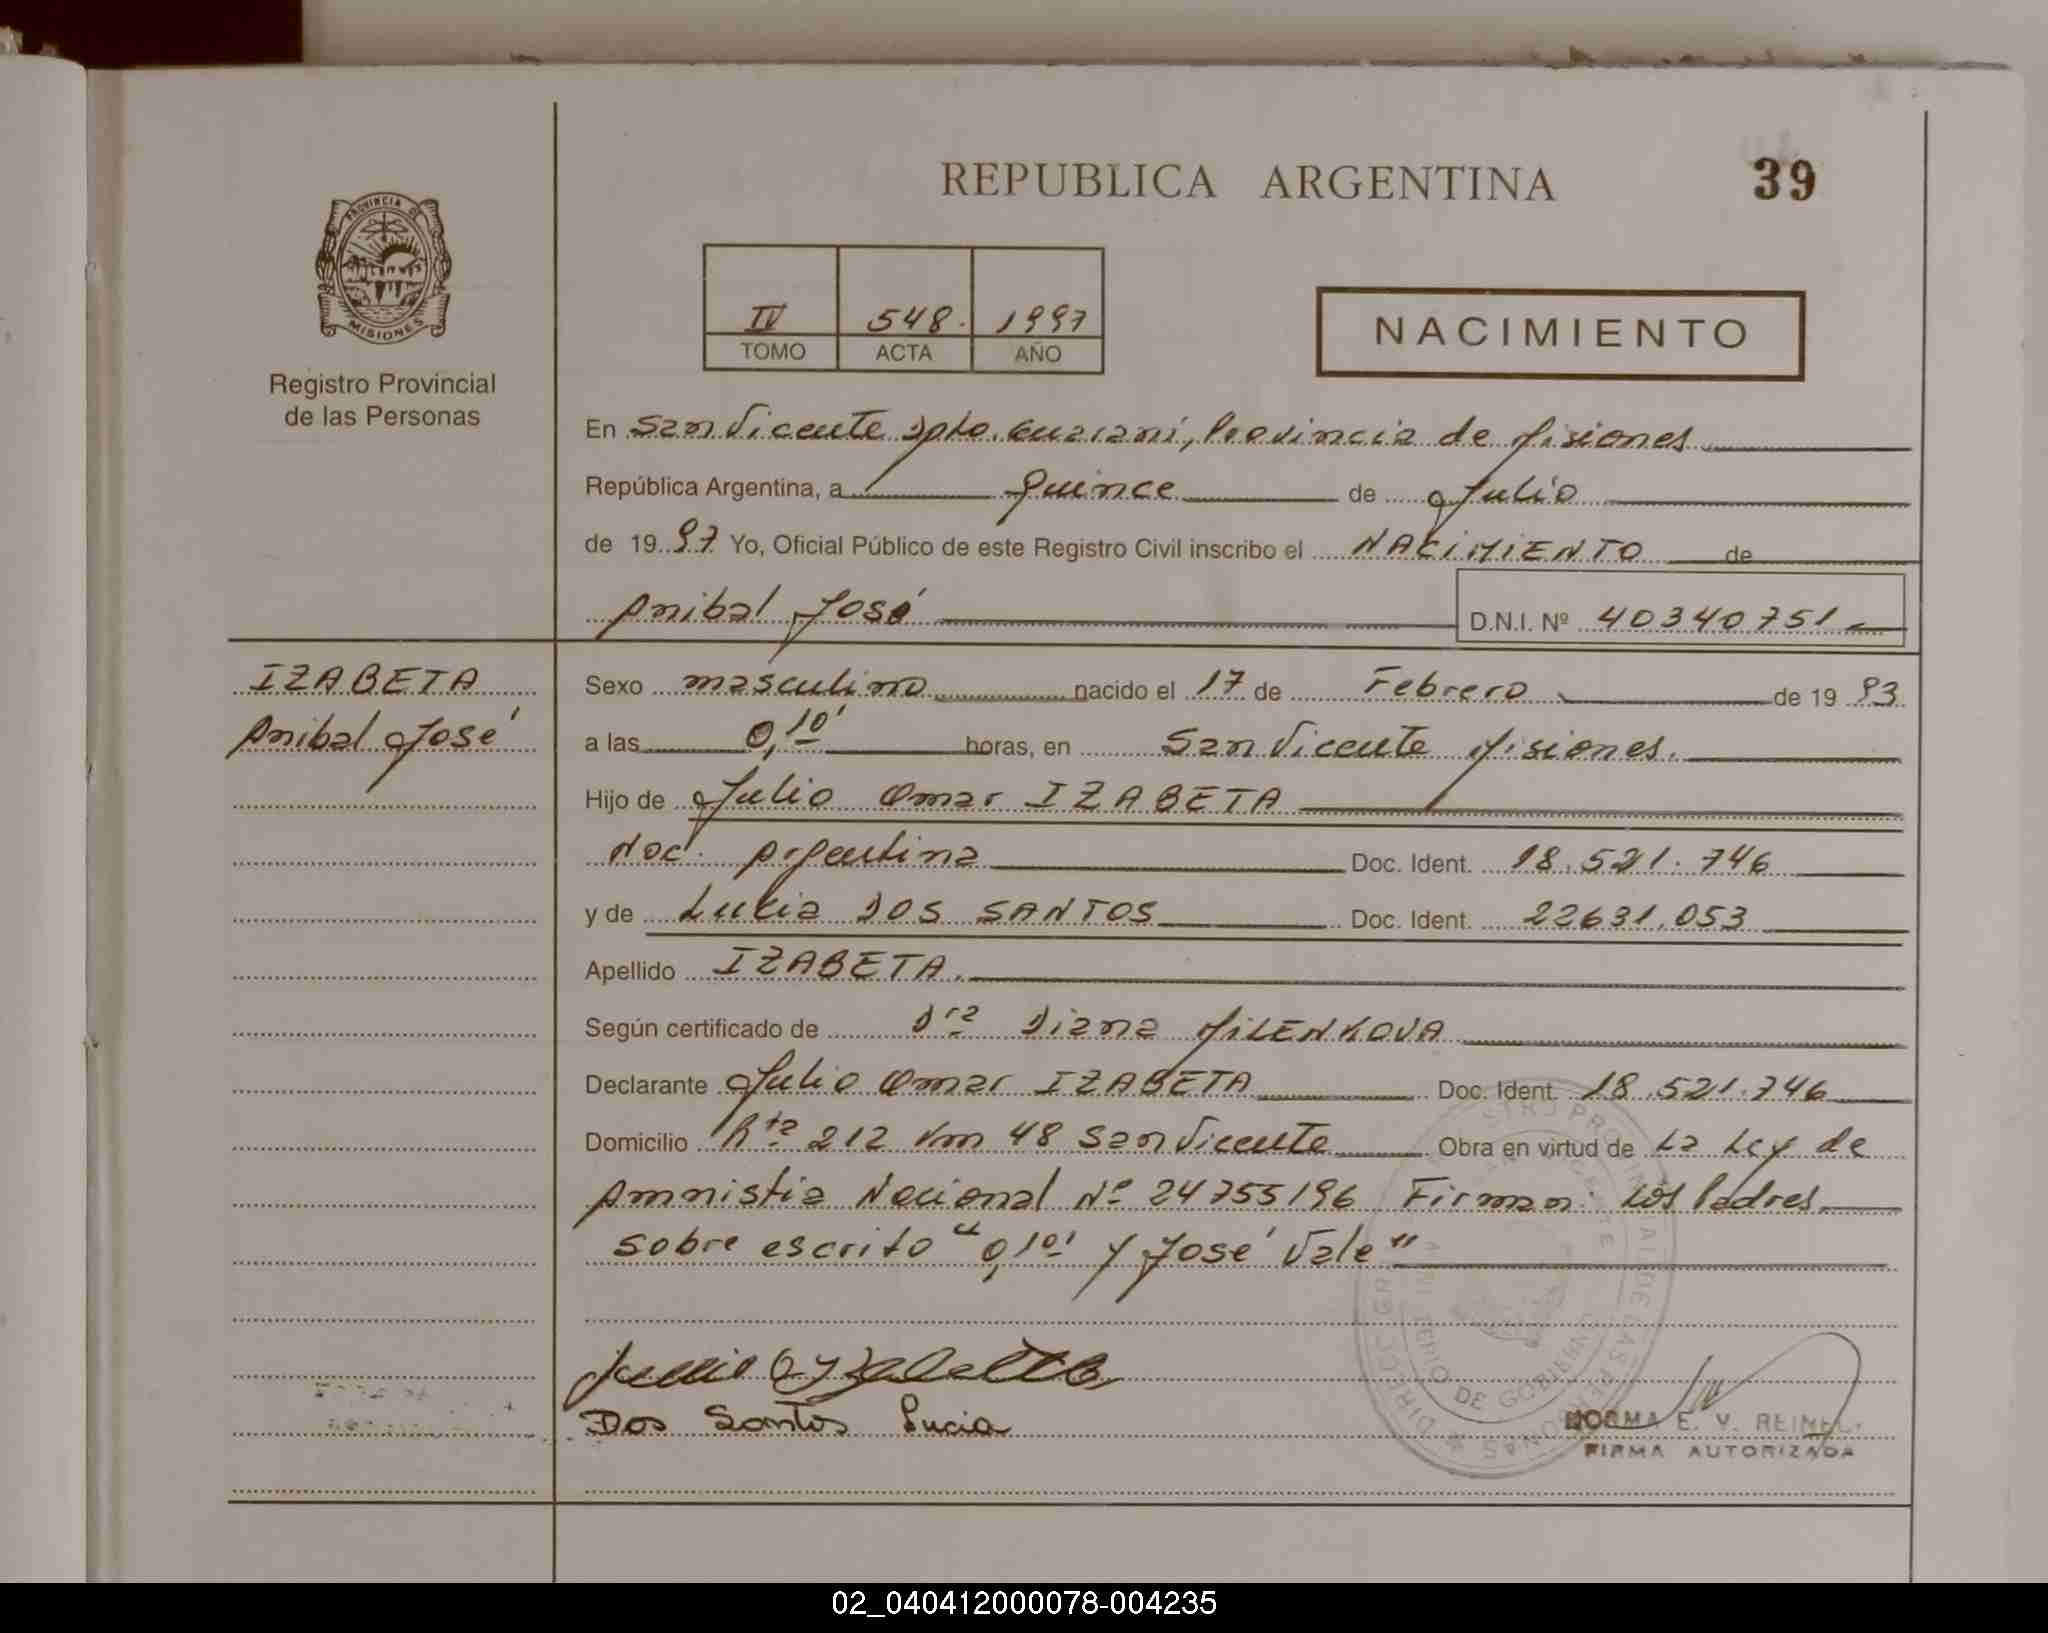 REPUBLICA ARGENTINA
39
PROVINCIA DE
MISIONES
Registro Provincial
de las Personas
IV 548. 1997
TOMO ACTA AÑO
NACIMIENTO
En San Vicente Dpto. Guaraní, Provincia de Misiones
República Argentina, a Quince de Julio
de 1997 Yo, Oficial Público de este Registro Civil inscribo el NACIMIENTO de
Anibal José
D.N.I. Nº 40340751
IZABETA
Anibal José
Sexo masculino nacido el 17 de Febrero de 1993
a las 0,10' horas, en San Vicente Misiones.
Hijo de Julio Omar IZABETA
Nac. Argentina Doc. Ident. 18.521.746
y de Lucia DOS SANTOS Doc. Ident. 22631.053
Apellido IZABETA.
Según certificado de Dra Diana MILENKOVA
Declarante Julio Omar IZABETA Doc. Ident. 18.521.746
Domicilio Rta 212 Km 48 San Vicente Obra en virtud de La Ley de
Amnistia Nacional Nº 24755/96 Firman: Los Padres
sobre escrito "0,10' y José Vale"
Dos Santos Lucia
NORMA E. V. REINEL
FIRMA AUTORIZADA
02_040412000078-004235